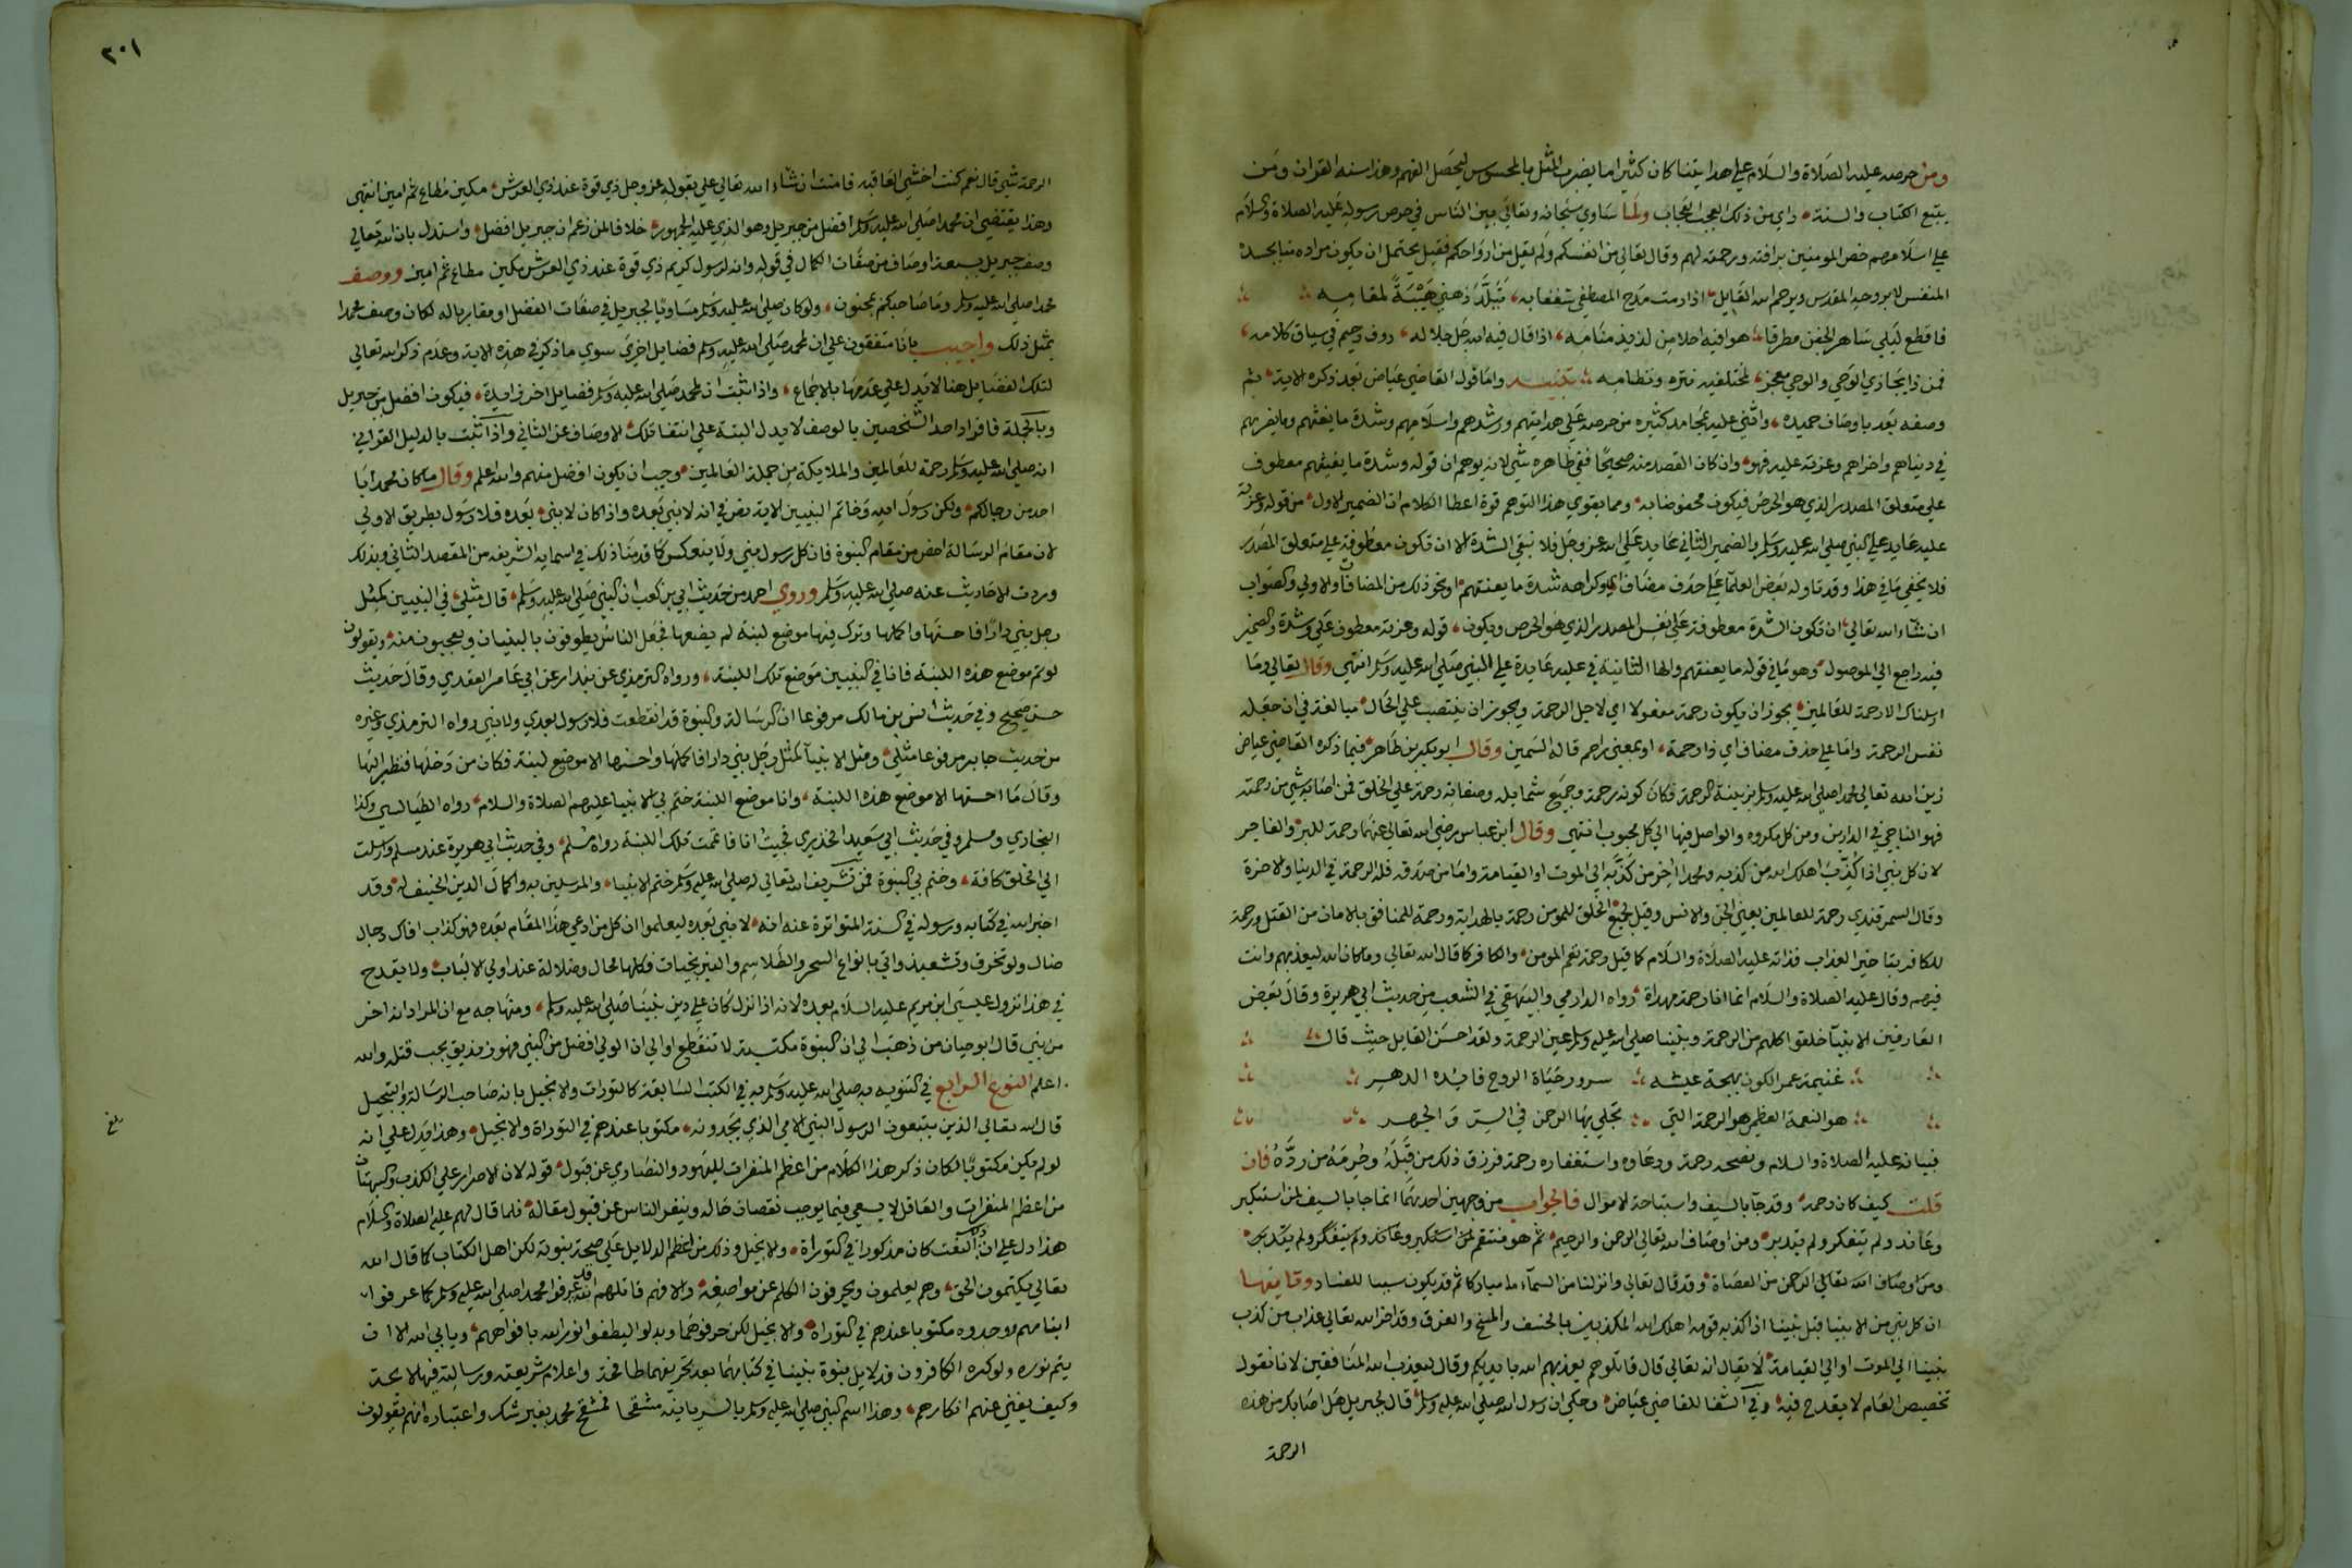 ومن حرصه عليه الصلاة والسلام علي هدايتنا كان كثيرا ما يضرب المثل بالمحسوس ليحصل الفهم وهذا سنة القران ومن
يتبع الكتاب والسنة راي من ذلك العجب العجاب ولما ساوي سبحانه وتعالي بين الناس في حرص رسوله عليه الصلاة والسلام
علي اسلامهم خص المومنين برافته ورحمته لهم وقال تعالي من انفسكم ولم يقل من ارواحكم فقيل يحتمل ان يكون مراده منا بجسده
المنفس لا بروحه المقدس ويرحم الله القايل اذا رمت مدح المصطفي شغفا به تبلد ذهني هيبة لمقامه
فاقطع ليلي ساهر الجفن مطرقا هوا فيه احلا من لذيذ منامه اذا قال فيه الله جل جلاله روف رحيم في سياق كلامه
فمن ذا يجازي الوحي والوحي معجز لمختلفين نثره ونظامه تنبيه واما قول القاضي عياض بعد ذكره الاية ثم
وصفه بعد باوصاف حميده واثني عليه بمحامد كثيره من حرصه علي هدايتهم ورشدهم واسلامهم وشدة ما يعنتهم ويضر بهم
في دنياهم واخراهم وعزته عليه فهو وان كان القصد منه صحيحا ففي ظاهره شي لانه يوهم ان قوله وشدة ما يعنتهم معطوف
علي متعلق المصدر الذي هو الحرص فيكون مخفوضا به ومما يقوي هذا التوهم قوة اعطا الكلام ان الضمير الاول من قوله وعزته
عليه عايد علي النبي صلي الله عليه وسلم والضمير الثاني عايد علي الله عز وجل فلا تبقي الشدة الا ان تكون معطوفة علي متعلق المصدر
فلا يخفي ما في هذا وقد تاوله بعض العلما علي حذف مضاف اي وكراهة شدة ما يعنتهم او نحو ذلك من المضاف والاولي والصواب
ان شاء الله تعالي ان تكون الشدة معطوفة علي نفس المصدر الذي هو الحرص ويكون قوله وعزته معطوف علي وشدة والضمير
فيه راجع الي الموصول وهو ما في قوله ما يعنتهم والها الثانية في عليه عايدة علي النبي صلي الله عليه وسلم انتهي وقال تعالي وما
ارسلناك الا رحمة للعالمين يجوز ان يكون رحمة مفعولا اي لاجل الرحمة ويجوز ان ينتصب علي الحال مبالغة في ان جعله
نفس الرحمة واما علي حذف مضاف اي ذا رحمة او بمعني راحم قاله السمين وقال ابو بكر بن طاهر فيما ذكره القاضي عياض
زين الله تعالي محمدا صلي الله عليه وسلم بزينة الرحمة فكان كونه رحمة وجميع شمايله وصفاته رحمة علي الخلق فمن اصابه شي من رحمته
فهو الناجي في الدارين من كل مكروه والواصل فيها الي كل محبوب انتهي وقال ابن عباس رضي الله تعالي عنهما رحمة للبر والفاجر
لان كل نبي اذا كذب اهلك الله من كذبه ومحمد اخر من كذبه الي الموت او القيامة واما من صدقه فله الرحمة في الدنيا والاخرة
وقال السمرقندي رحمة للعالمين يعني الجن والانس وقيل لجميع الخلق للمومن رحمة بالهداية ورحمة للمنافق بالامان من القتل ورحمة
للكافر بتاخير العذاب فذاته عليه الصلاة والسلام كما قيل رحمة تعم المومن والكافر كما قال الله تعالي وما كان الله ليعذبهم وانت
فيهم وقال عليه الصلاة والسلام انما انا رحمة مهداة رواه الدارمي والبيهقي في الشعب من حديث ابي هريرة وقال بعض
العارفين الانبيا خلقوا كلهم من الرحمة ونبينا صلي الله عليه وسلم عين الرحمة ولقد احسن القايل حيث قال
غنيمة عمر الكون بهجة عيشه سرور حياة الروح فايده الدهر
هو النعمة العظمي هو الرحمة التي تجلي بها الرحمن في السر والجهر
فبيانه عليه الصلاة والسلام ونصحه رحمة ودعاوه واستغفاره رحمة فرزق ذلك من قبله وحرمه من رده فان
قلت كيف كان رحمة وقد جا بالسيف واستباحة الاموال فالجواب من وجهين احدهما انما جا بالسيف لمن استكبر
وعاند ولم يتفكر ولم يتدبر ومن اوصاف الله تعالي الرحمن والرحيم ثم هو منتقم لمن استكبر وعاند ولم يتفكر ولم يتدبر
ومن اوصاف الله تعالي الرحمن من العصاة وقد قال تعالي وانزلنا من السماء ماء مباركا ثم قد يكون سببا للفساد وثانيهما
ان كل نبي من الانبيا قبل نبينا اذا كذبه قومه اهلك الله المكذبين بالخسف والمسخ والغرق وقد اخر الله تعالي عذاب من كذب
نبينا الي الموت او الي القيامة لا يقال انه تعالي قال قاتلوهم يعذبهم الله بايديكم وقال ليعذب الله المنافقين لانا نقول
تخصيص العام لا يقدح فيه وفي الشفا للقاضي عياض وحكي ان رسول الله صلي الله عليه وسلم قال لجبريل هل اصابك من هذه
الرحمة
٢٠١
الرحمة شي قال نعم كنت اخشي العاقبة فامنت ان شاء الله تعالي علي بقوله عز وجل ذي قوة عند ذي العرش مكين مطاع ثم امين انتهي
وهذا يقتضي ان محمدا صلي الله عليه وسلم افضل من جبريل وهو الذي عليه الجمهور خلافا لمن زعم ان جبريل افضل واستدل بان الله تعالي
وصف جبريل بسبعة اوصاف من صفات الكمال في قوله وانه لرسول كريم ذي قوة عند ذي العرش مكين مطاع ثم امين ووصف
محمدا صلي الله عليه وسلم وما صاحبكم بمجنون ولو كان صلي الله عليه وسلم مساويا لجبريل في صفات الفضل او مقاربا له لكان وصف محمدا
بمثل ذلك واجيب بانا متفقون علي ان لمحمد صلي الله عليه وسلم فضايل اخري سوي ما ذكر في هذه الاية وعدم ذكر الله تعالي
لتلك الفضايل هنا لا يدل علي عدمها بالاجماع واذا ثبت ان لمحمد صلي الله عليه وسلم فضايل اخر زايدة فيكون افضل من جبريل
وبالجملة فافراد احد الشخصين بالوصف لا يدل البتة علي انتفا تلك الاوصاف عن الثاني واذا ثبت بالدليل القراني
انه صلي الله عليه وسلم رحمة للعالمين والملايكة من جملة العالمين وجب ان يكون افضل منهم والله اعلم وقال ما كان محمد ابا
احد من رجالكم ولكن رسول الله وخاتم النبيين الاية نص في انه لا نبي بعده واذا كان لا نبي بعده فلا رسول بطريق الاولي
لان مقام الرسالة اخص من مقام النبوة فان كل رسول نبي ولا ينعكس كما قدمنا ذلك في اسمايه الشريفه من المقصد الثاني وبذلك
وردت الاحاديث عنه صلي الله عليه وسلم وروي احمد من حديث ابي بن كعب ان النبي صلي الله عليه وسلم قال مثلي في النبيين كمثل
رجل بني دارا فاحسنها واكملها وترك فيها موضع لبنة لم يضعها فجعل الناس يطوفون بالبنيان ويعجبون منه ويقولون
لو تم موضع هذه اللبنة فانا في النبيين موضع تلك اللبنة ورواه الترمذي عن بندار عن ابي عامر العقدي وقال حديث
حسن صحيح وفي حديث انس بن مالك مرفوعا ان الرسالة والنبوة قد انقطعت فلا رسول بعدي ولا نبي رواه الترمذي وغيره
من حديث جابر مرفوعا مثلي ومثل الانبيا كمثل رجل بني دارا فاكملها واحسنها الا موضع لبنة فكان من دخلها فنظر اليها
وقال ما احسنها الا موضع هذه اللبنة وانا موضع اللبنة ختم بي الانبيا عليهم الصلاة والسلام رواه الطيالسي وكذا
البخاري ومسلم وفي حديث ابي سعيد الخدري فجيت انا فاتممت تلك اللبنة رواه مسلم وفي حديث ابي هريرة عند مسلم وارسلت
الي الخلق كافة وختم بي النبوة فمن تشريف الله تعالي له صلي الله عليه وسلم ختم الانبيا والمرسلين به واكمال الدين الحنيف له وقد
اخبر الله في كتابه ورسوله في السنة المتواترة عنه انه لا نبي بعده ليعلموا ان كل من ادعي هذا المقام بعده فهو كذاب افاك دجال
ضال ولو تخرق وتشعبذ واتي بانواع السحر والطلاسم والنيرنجيات فكلها محال وضلالة عند اولي الالباب ولا يقدح
في هذا نزول عيسي ابن مريم عليه السلام بعده لانه اذا نزل كان علي دين نبينا صلي الله عليه وسلم ومنهاجه مع ان المراد انه اخر
من نبي قال ابو حيان من ذهب الي ان النبوة مكتسبة لا تنقطع او الي ان الولي افضل من النبي فهو زنديق يجب قتله والله
اعلم النوع الرابع في التنويه به صلي الله عليه وسلم في الكتب السابقة كالتورات والانجيل بانه صاحب الرسالة والتبجيل
قال الله تعالي الذين يتبعون الرسول النبي الامي الذي يجدونه مكتوبا عندهم في التوراة والانجيل وهذا يدل علي انه
بلغ
لو لم يكن مكتوبا لكان ذكر هذا الكلام من اعظم المنفرات لليهود والنصاري عن قبول قوله لان الاصرار علي الكذب والبهتان
من اعظم المنفرات والعاقل لا يسعي فيما يوجب نقصان حاله وينفر الناس عن قبول مقاله فلما قال لهم عليه الصلاة والسلام
هذا دل علي ان ذلك النعت كان مذكورا في التوراة والانجيل وذلك من اعظم الدلايل علي صحة نبوته لكن اهل الكتاب كما قال الله
تعالي يكتمون الحق وهم يعلمون ويحرفون الكلم عن مواضعه والا فهم قاتلهم الله قد عرفوا محمدا صلي الله عليه وسلم كما عرفوا
ابناهم ووجدوه مكتوبا عندهم في التوراة والانجيل لكن حرفوهما وبدلوا ليطفوا نور الله بافواههم ويابي الله الا ان
يتم نوره ولو كره الكافرون فدلايل نبوة نبينا في كتابهما بعد تحريفهما طافحة واعلام شريعته ورسالته فيهما لايحة
وكيف يغني عنهم انكارهم وهذا اسم النبي صلي الله عليه وسلم بالسريانية مشفحا فمشفح محمد بغير شك واعتباره انهم يقولون